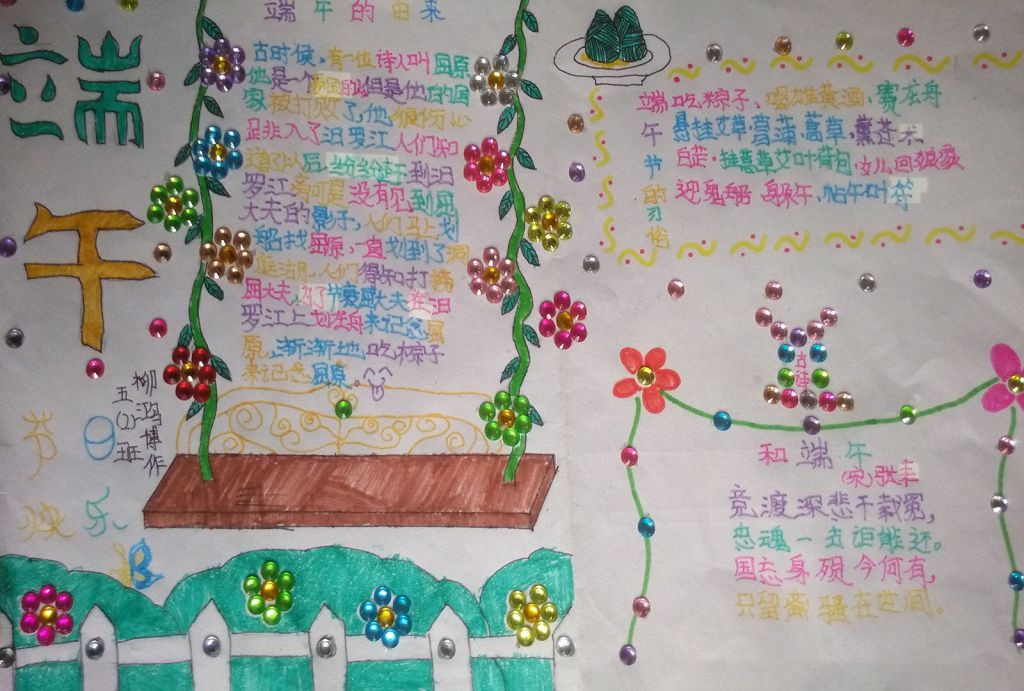 端
午
节日
快乐
五(2)班
柳鸿博作
端午的由来
古时候,有一位诗人叫屈原
他是一个爱国的但是他的国
家被打败了,他很伤心
投入了汨罗江人们知
道了以后纷纷赶到汨
罗江,可是没有见到屈
大夫的影子,人们马上划
船找屈原,一直划到了洞
庭湖,人们得知打捞
屈大夫,为了节哀屈大夫在汨
罗江上划龙舟来记念屈
原,渐渐地吃粽子
来记念屈原。
端午节的习俗
吃粽子、喝雄黄酒、赛龙舟
悬挂艾草菖蒲蒿草、薰苍术
白芷·挂蒿草艾叶荷包
迎鬼船 躲午,帖午叶符
古诗
和端午
(宋)张耒
竞渡深悲千载冤,
忠魂一去讵能还。
国忘身殒今何有,
只留离骚在世间。